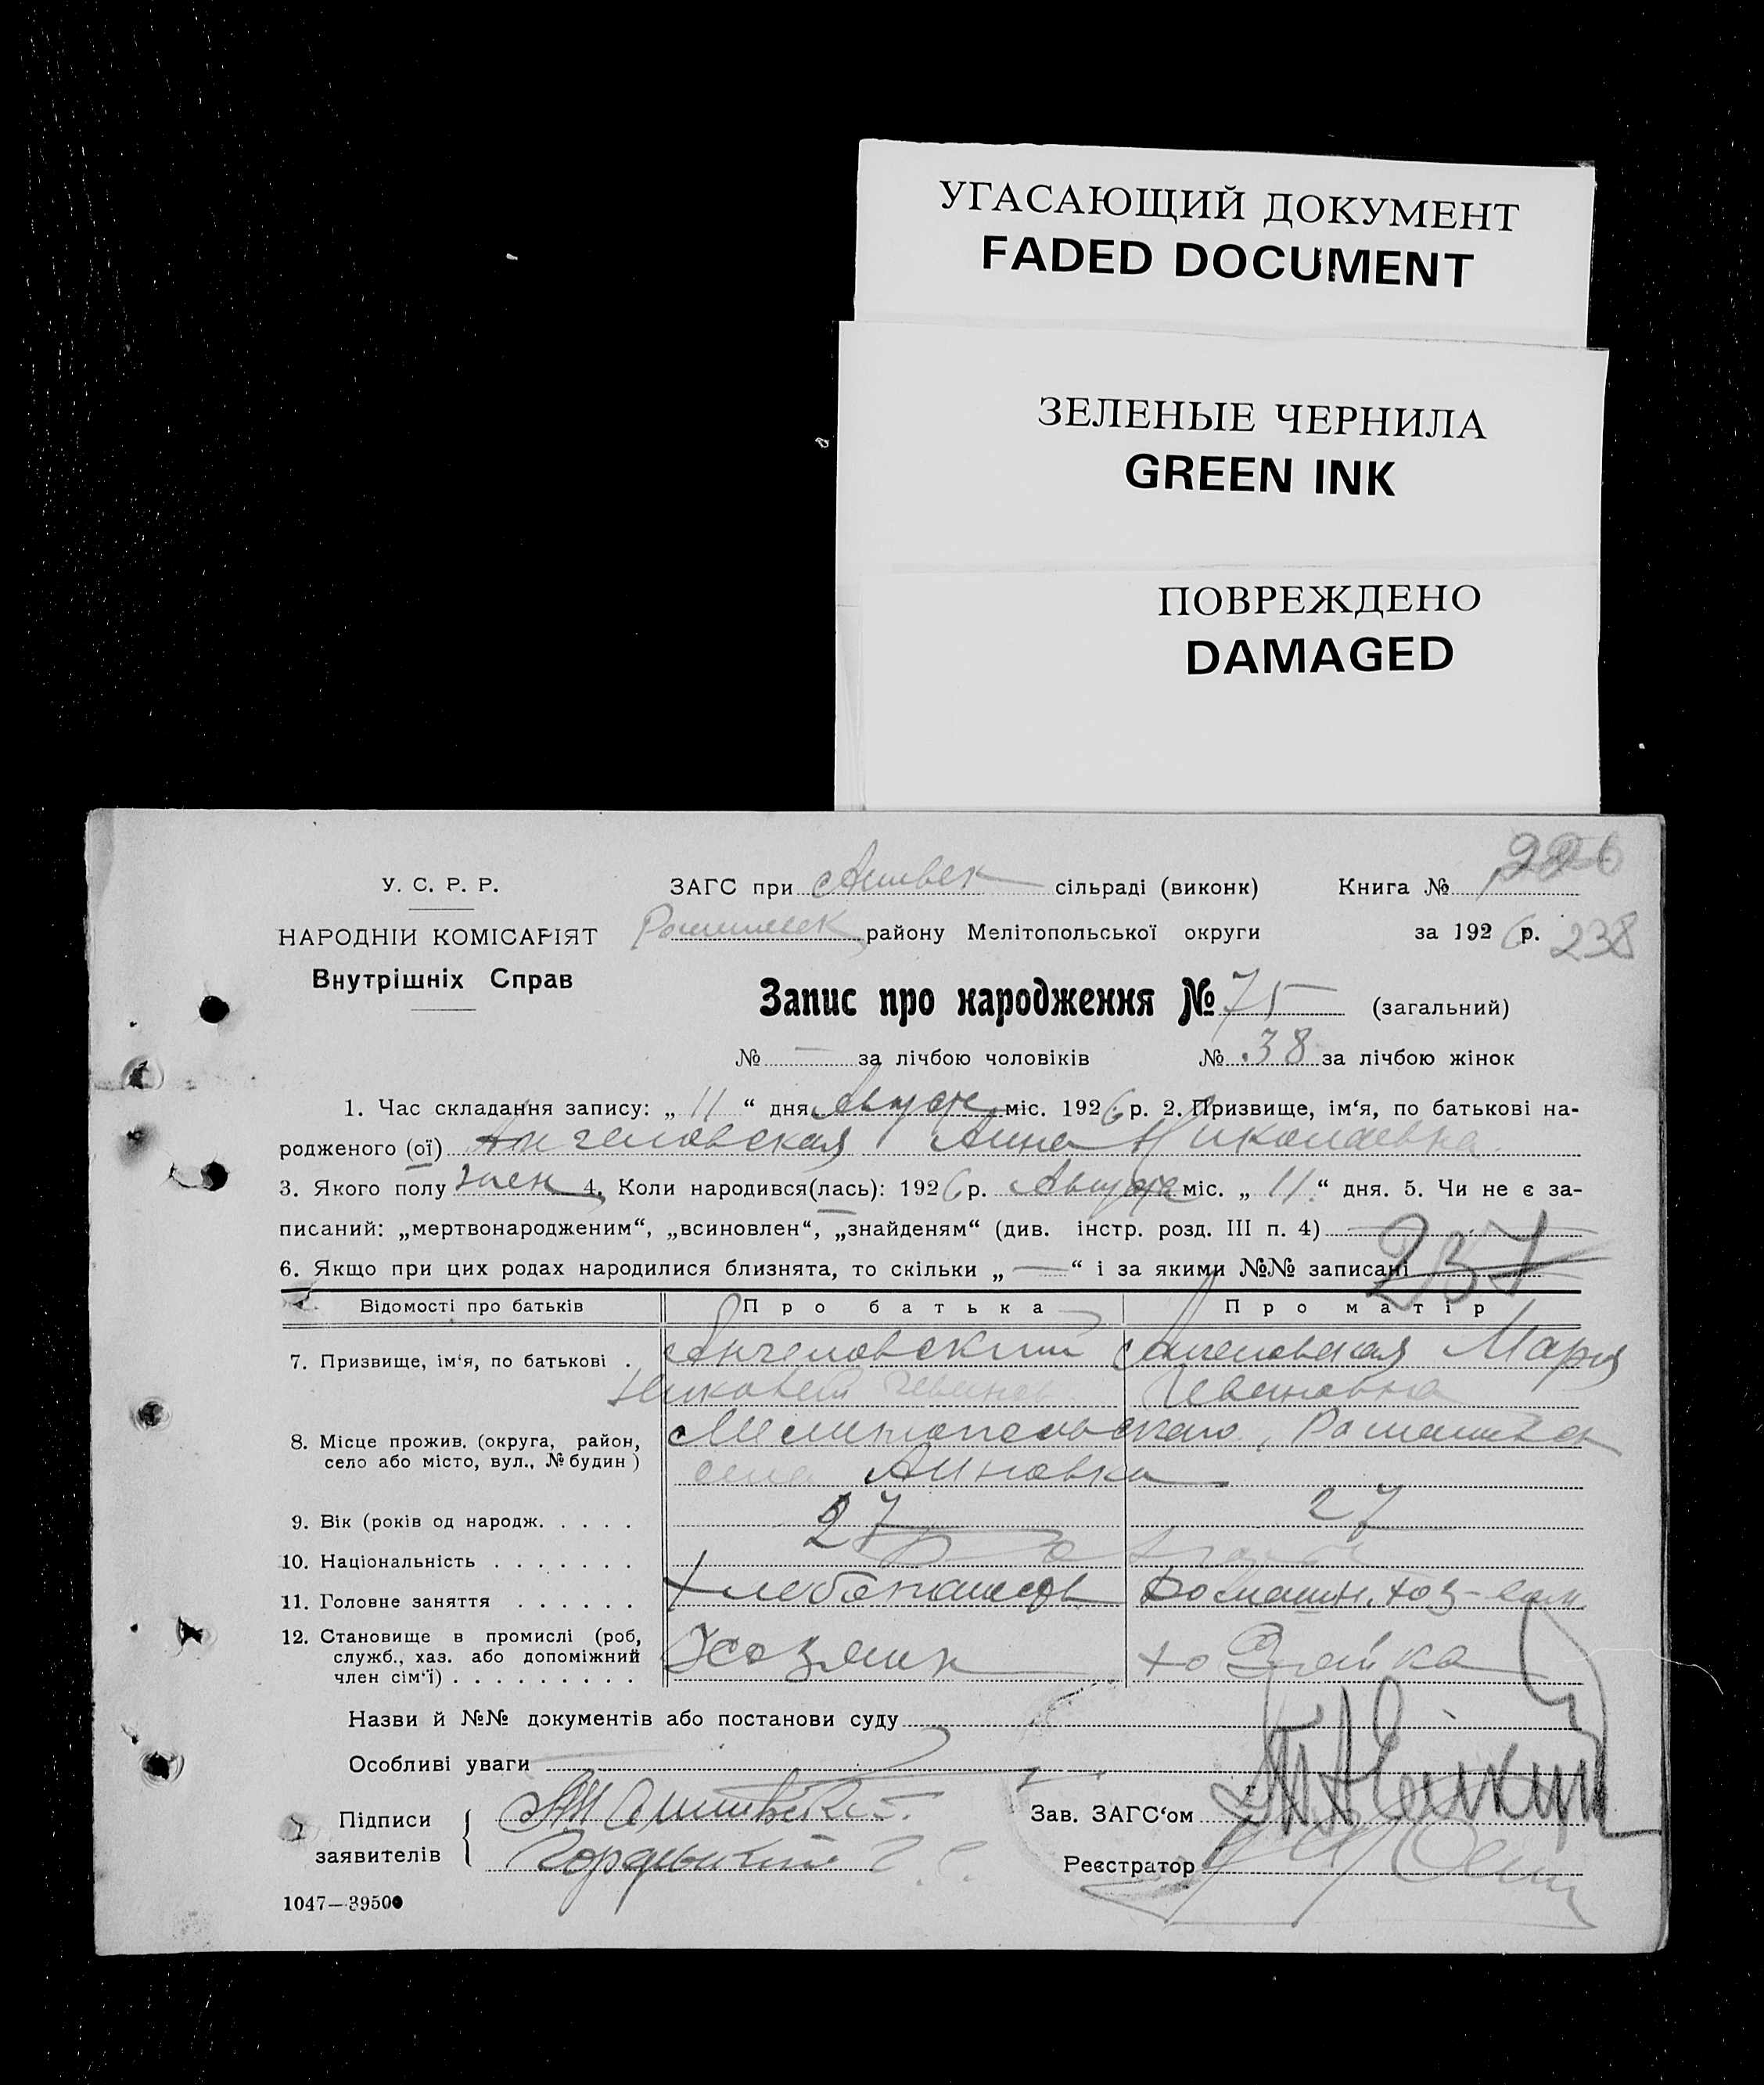 УГАСАЮЩИЙ ДОКУМЕНТ
FADED DOCUMENT
ЗЕЛЕНЫЕ ЧЕРНИЛА
GREEN INK
ПОВРЕЖДЕНО
DAMAGED
У. С. Р. Р.
НАРОДНІИ КОМІСАРІЯТ
Внутрішніх Справ
ЗАГС при сільраді (виконк) Книга №
району Мелітопольської округи за 1926 р. 238
Запис про народження № 75 (загальний)
№ — за лічбою чоловіків № 38 за лічбою жінок
1. Час складання запису: „ 11 “ дня Августа міс. 1926 р. 2. Призвище, ім‘я, по батькові на-
родженого (ої) Ангеловская Анна Николаевна
3. Якого полу жен 4. Коли народився(лась): 1926 р. Августа міс. „ 11 “ дня. 5. Чи не є за-
писаний: „мертвонародженим“, „всиновлен“, „знайденям“ (див. інстр. розд. III п. 4) —
6. Якщо при цих родах народилися близнята, то скільки „ — “ і за якими №№ записані 237
Відомості про батьків Про батька Про матір
7. Призвище, ім‘я, по батькові . Ангеловский Ангеловская Мария
Николай Ивановна
8. Місце прожив. (округа, район,
село або місто, вул., № будин) Мелитопольского,
села
9. Вік (років од народж. . . . . 27 27
10. Національність . . . . . . .
11. Головне заняття . . . . . . хлебопашец домашн. хоз-вом
12. Становище в промислі (роб,
служб., хаз. або допоміжний
член сім‘ї) . . . . . . . . . Хозяин хозяйка
Назви й №№ документів або постанови суду
Особливі уваги
Підписи
заявителів
Зав. ЗАГС‘ом
Реєстратор
1047—39500